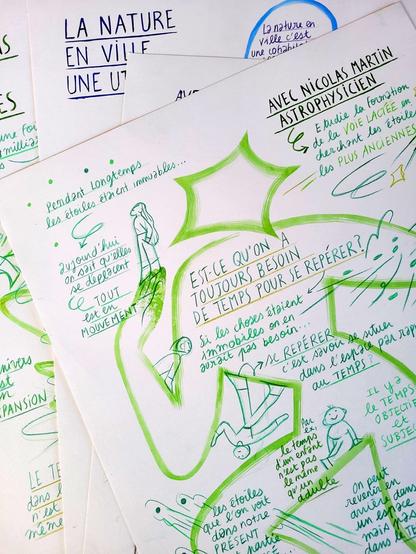 LA NATURE
EN VILLE
UNE UT
La nature en
ville c'est
une cohabita
AVEC NICOLAS MARTIN
ASTROPHYSICIEN
Etudie la formation
de la VOIE LACTÉE en
cherchant les étoiles
les PLUS ANCIENNES
Pendant longtemps...
les étoiles étaient immuables...
aujourd'hui
on sait qu'elles
se déplacent
TOUT
est en
MOUVEMENT
EST-CE QU'ON A
TOUJOURS BESOIN
DE TEMPS POUR SE REPÉRER?
Si les choses étaient
immobiles on en
aurait pas besoin...
SE REPÉRER
c'est savoir se situer
dans l'espace par rap
au TEMPS?
IL y a
le TEMPS
OBJECTIF
et
SUBJEC
Par
ex:
le temps
d'un enfant
n'est pas
le même
qu'un
adulte
univers
est
en
EXPANSION
LE TE
dans l
n'est
même
les étoiles
que l'on voit
dans notre
PRÉSENT
On peut
revenir en
arrière dans
un espace
mais pas
dans le